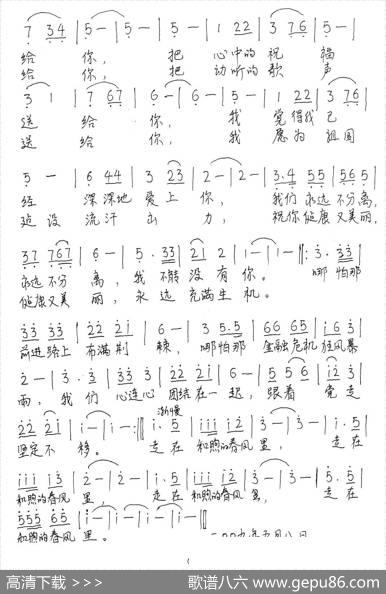 7 34 | 5 - | 5 - | 5 - | 1 22 | 3 76 | 5 - |
给 你， 把 心中的 祝 福
给 你， 把 动听的 歌 声
3 1 | 7 67 | 6 - | 6 - | 5 | 1 22 | 3 76 |
送 给 你， 我 觉得我 已
送 给 你， 我 愿为 祖国
5 - | 6 44 | 3 23 | 2 - | 2 - | 3·4 55 | 56 5 |
经 深深地 爱上 你， 我们 永远 不分离，
建设 流汗 出 力， 祝你 健康 又美丽，
37 767 | 6 - | 5· 33 | 21 2 | 1 - | 1 - :‖ 3· 33 |
永远 不分 离， 我 不能 没有 你。 哪 怕那
健康 又美 丽， 永 远 充满 生 机。
33 33 | 22 21 | 6 - | 3 5·5 | 66 65 | i 6 3 |
前进 路上 布满 荆 棘， 哪怕那 金融 危机 狂风暴
2 - | 3· 3 | 33 3 | 22 21 | 5 - | 5 6 | i2 3 |
雨， 我 们 心连心 团结 在一 起， 跟着 党 走
渐慢
22 21 | i - | i - :‖ i· 5 | iii i2 | 3 - | 5· 5 |
坚定 不 移。 走 在 和煦的 春风 里， 走 在
iii i3 | 2 - | 2 - | i· 5 | iii i2 | 3 - | 5· 5 |
和煦的 春风 里， 走 在 和煦的 春风 里， 走 在
555 65 | i - | i - | i - | i - ‖
和煦的 春风 里。
高清下载 >>>
歌谱八六 www.gepu86.com